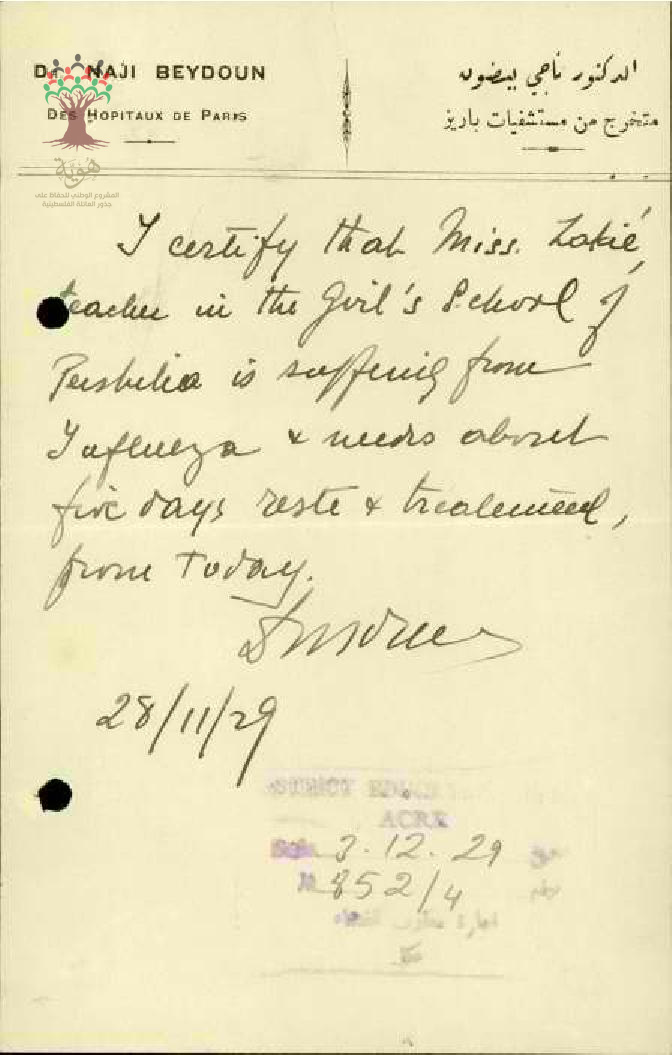 Dr NAJI BEYDOUN
DES HOPITAUX DE PARIS
الدكتور ناجي بيضون
متخرج من مستشفيات باريز
هويّة
المشروع الوطني للحفاظ على
جذور العائلة الفلسطينية
I certify that Miss. Zakié,
teacher in the Girl's School of
is suffering from
Influenza & needs about
five days reste & treatement,
from today.
28/11/29
ACRE
3.12.29
No 852/4
عكا